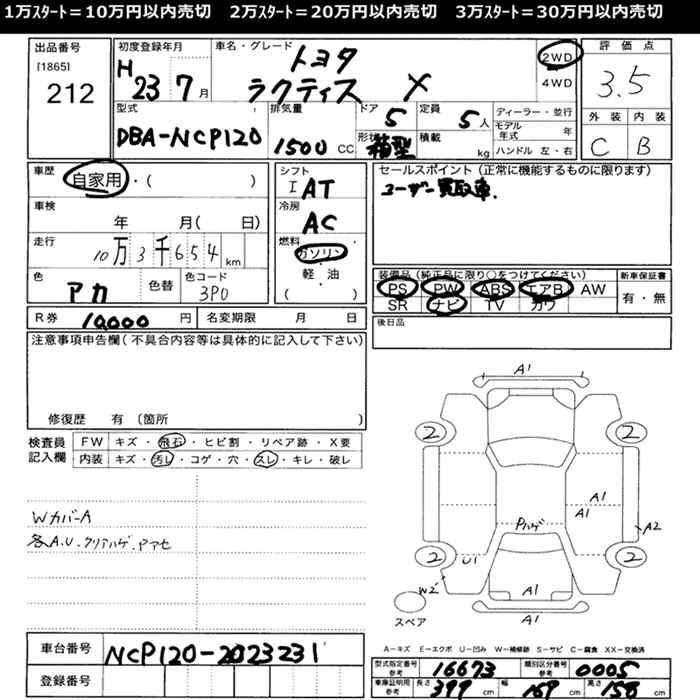 1万ｽﾀｰﾄ＝10万円以内売切　2万ｽﾀｰﾄ＝20万円以内売切　3万ｽﾀｰﾄ＝30万円以内売切
出品番号
[1865]
212
初度登録年月
H 23 7 月
車名・グレード
トヨタ
ラクティス X
2WD
4WD
評価点
3.5
外装 内装
C B
型式
DBA-NCP120
排気量
1500 CC
ドア
5
形状
箱型
定員
5 人
積載
kg
ディーラー・並行
モデル年式 年
ハンドル 左・右
車歴
自家用・( )
車検
年 月( 日)
走行
10万3千654 km
色
アカ
色替
色コード
3P0
シフト
I AT
冷房
AC
燃料
ガソリン
軽・油
( )
セールスポイント (正常に機能するものに限ります)
ユーザー買取車.
装備品(純正品に限り○をつけてください)
PS PW ABS エアB AW
SR ナビ TV カワ
新車保証書
有・無
R券 10,000 円
名変期限 月 日
後日品
注意事項申告欄(不具合内容等は具体的に記入して下さい)
修復歴 有 (箇所 )
検査員記入欄
FW キズ・飛石・ヒビ割・リペア跡・X要
内装 キズ・汚レ・コゲ・穴・スレ・キレ・破レ
Wカバー A
各A.U.クリアハゲ.Pアセ
A1
2 2
A1
A1
Pハゲ
A2
2 2
U1
W2
A1
A1
スペア
A－キズ E－エクボ U－凹み W－補修跡 S－サビ C－腐食 XX－交換済
車台番号 NCP120-2023231
登録番号
型式指定番号 参考 16673
類別区分番号 参考 0005
車庫証明用 参考 長さ 399 cm 幅 169 cm 高さ 158 cm